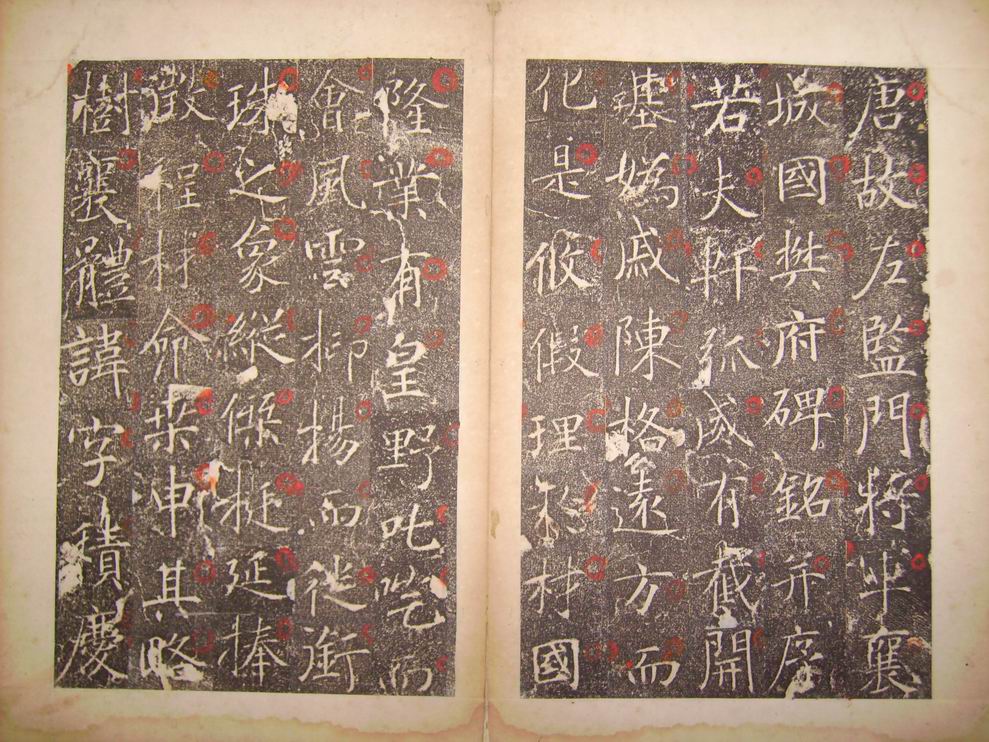 唐故左監門將軍襄
城國樊府碑銘并序
若夫軒弧威有截開
基媯戚陳格遠方而
化是攸假理材國
隆業有皇野叱咤而
會風雲抑揚而從衝
珠之象縱延捧
程材命申其略
樹襄體諱字積慶